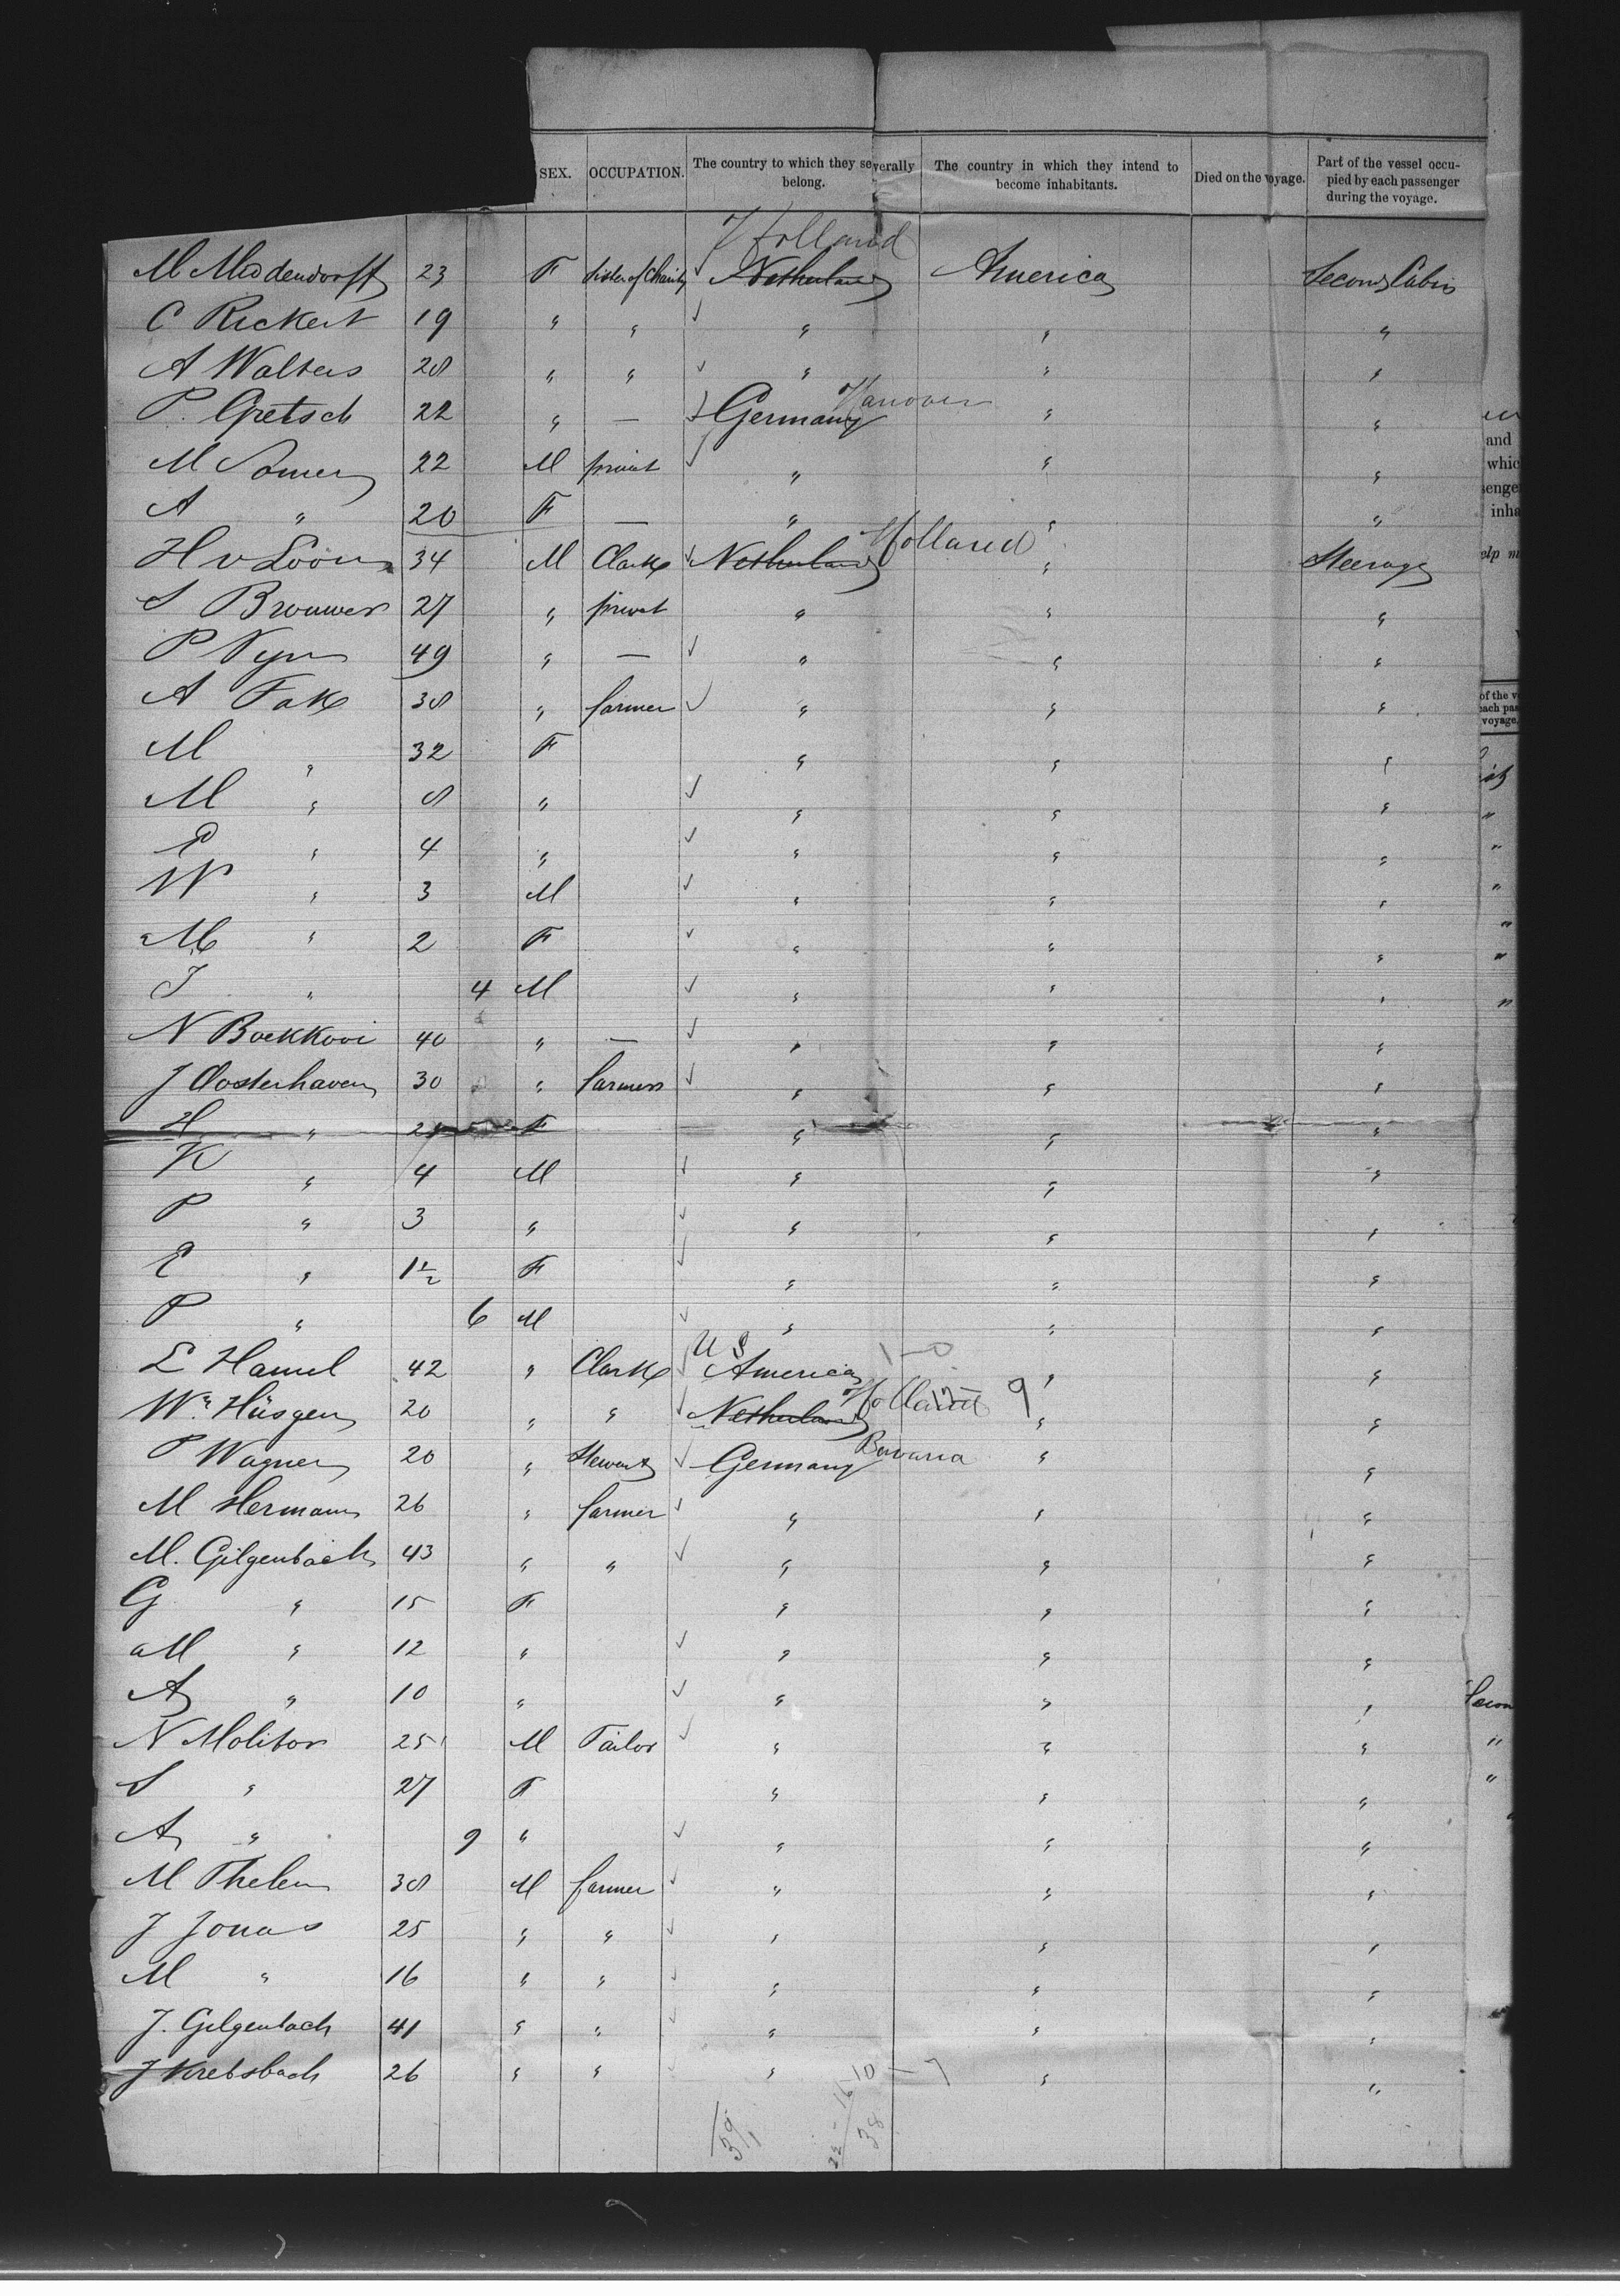 SEX. OCCUPATION. The country to which they severally belong. The country in which they intend to become inhabitants. Died on the voyage. Part of the vessel occupied by each passenger during the voyage.
Holland
M Middendorff 23 F Sister of Charity Netherland America Second Cabin
C Rickert 19 " " " " "
A Walters 28 " " " " "
Hanover
P. Gretsch 22 " — Germany " "
M Somer 22 M privat " " "
A " 20 F — " " "
Holland
H v Loon 34 M Clark Netherland " Steerage
S Brouwer 27 " privat " " "
P Nyn 49 " — " " "
A Fake 38 " farmer " " "
M " 32 F " " "
M " 8 " " " "
P " 4 " " " "
W " 3 M " " "
M " 2 F " " "
J " 4 M " " "
N Boekkooi 40 " — " " "
J Oosterhaven 30 " farmer " " "
H " F " " "
K " 4 M " " "
P " 3 " " " "
E " 1½ F " " "
P " 6 M " " "
U S
E Hamel 42 " Clark America " "
Holland 9
Wm Hüsgen 20 " " Netherland " "
Bavaria
P Wagner 20 " Steward Germany " "
M Hermann 26 " farmer " " "
M. Gilgenbach 43 " " " " "
G " 15 F " " "
M " 12 " " " "
A " 10 " " " "
N Molitor 25 M Tailor " " "
S " 27 F " " "
A " 9 " " " "
M Thelen 38 M farmer " " "
J Jonas 25 " " " " "
M " 16 " " " " "
J. Gilgenbach 41 " " " " "
J Krebsbach 26 " " " " "
39
38